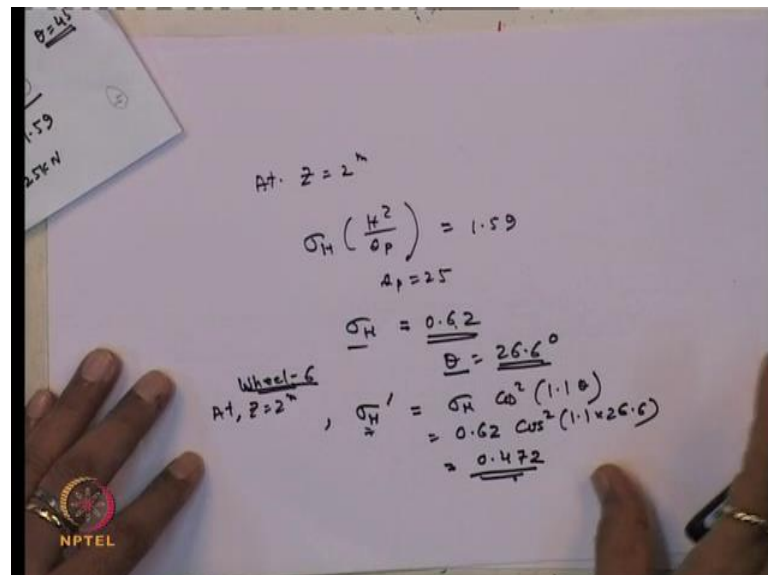 θ=45
1.59
25KN
At. Z = 2ᵐ
σ_H (H²/Q_P) = 1.59
Q_P = 25
σ_H = 0.62
θ = 26.6°
Wheel-6
At, Z=2ᵐ, σ_H' = σ_H Cos² (1.1θ)
= 0.62 Cos² (1.1×26.6)
= 0.472
NPTEL